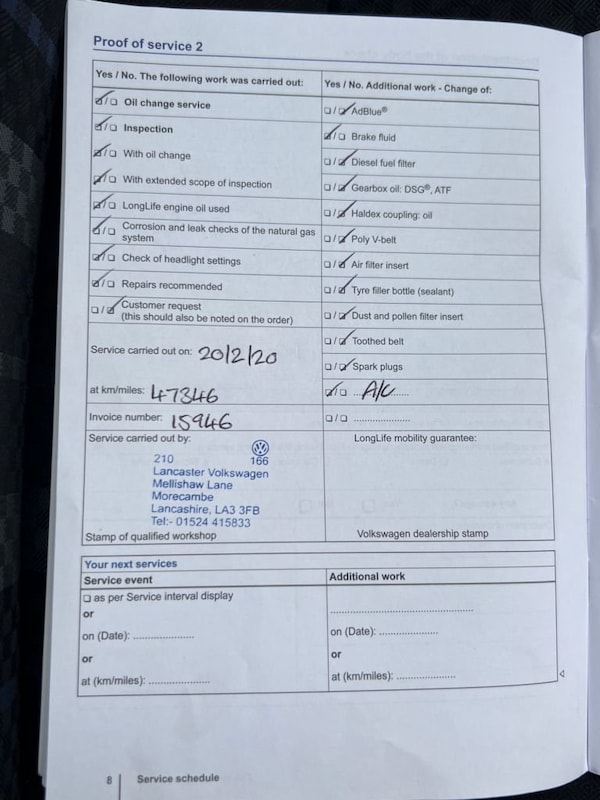 Proof of service 2
Yes / No. The following work was carried out:
☑/☐ Oil change service
☑/☐ Inspection
☑/☐ With oil change
☑/☐ With extended scope of inspection
☑/☐ LongLife engine oil used
☑/☐ Corrosion and leak checks of the natural gas
system
☑/☐ Check of headlight settings
☑/☐ Repairs recommended
☐/☑ Customer request
(this should also be noted on the order)
Service carried out on: 20/2/20
at km/miles: 47346
Invoice number: 15946
Service carried out by:
210 166
Lancaster Volkswagen
Mellishaw Lane
Morecambe
Lancashire, LA3 3FB
Tel:- 01524 415833
Stamp of qualified workshop
Yes / No. Additional work - Change of:
☐/☑ AdBlue®
☑/☐ Brake fluid
☐/☑ Diesel fuel filter
☐/☑ Gearbox oil: DSG®, ATF
☐/☑ Haldex coupling: oil
☐/☑ Poly V-belt
☐/☑ Air filter insert
☐/☑ Tyre filler bottle (sealant)
☐/☑ Dust and pollen filter insert
☐/☑ Toothed belt
☐/☑ Spark plugs
☑/☐ A/C
☐/☐ .....................
LongLife mobility guarantee:
Volkswagen dealership stamp
Your next services
Service event
☐ as per Service interval display
or
on (Date): .....................
or
at (km/miles): .....................
Additional work
..................................................
on (Date): .....................
or
at (km/miles): .....................
8 Service schedule